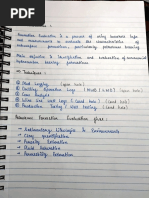 Formation Evaluation is a process of using borehole logs
measurements to evaluate the characteristics of
subsurface formations, particularly petroleum bearing
Main objective is Identification and evaluation of commercial
hydrocarbon bearing formations.
Techniques :
Mud Logging (open hole)
Cutting Formation Logs (MWD) (LWD) (open hole)
Core Analysis
Wire line well logs (open hole) (cased hole)
Production Testing / Well testing (cased hole)
Petroleum Formation Evaluation gives :
→ Sedimentary Lithologies & Environments
→ Clay quantification
→ Porosity Estimation
→ Fluid Saturation
→ Permeability Estimation